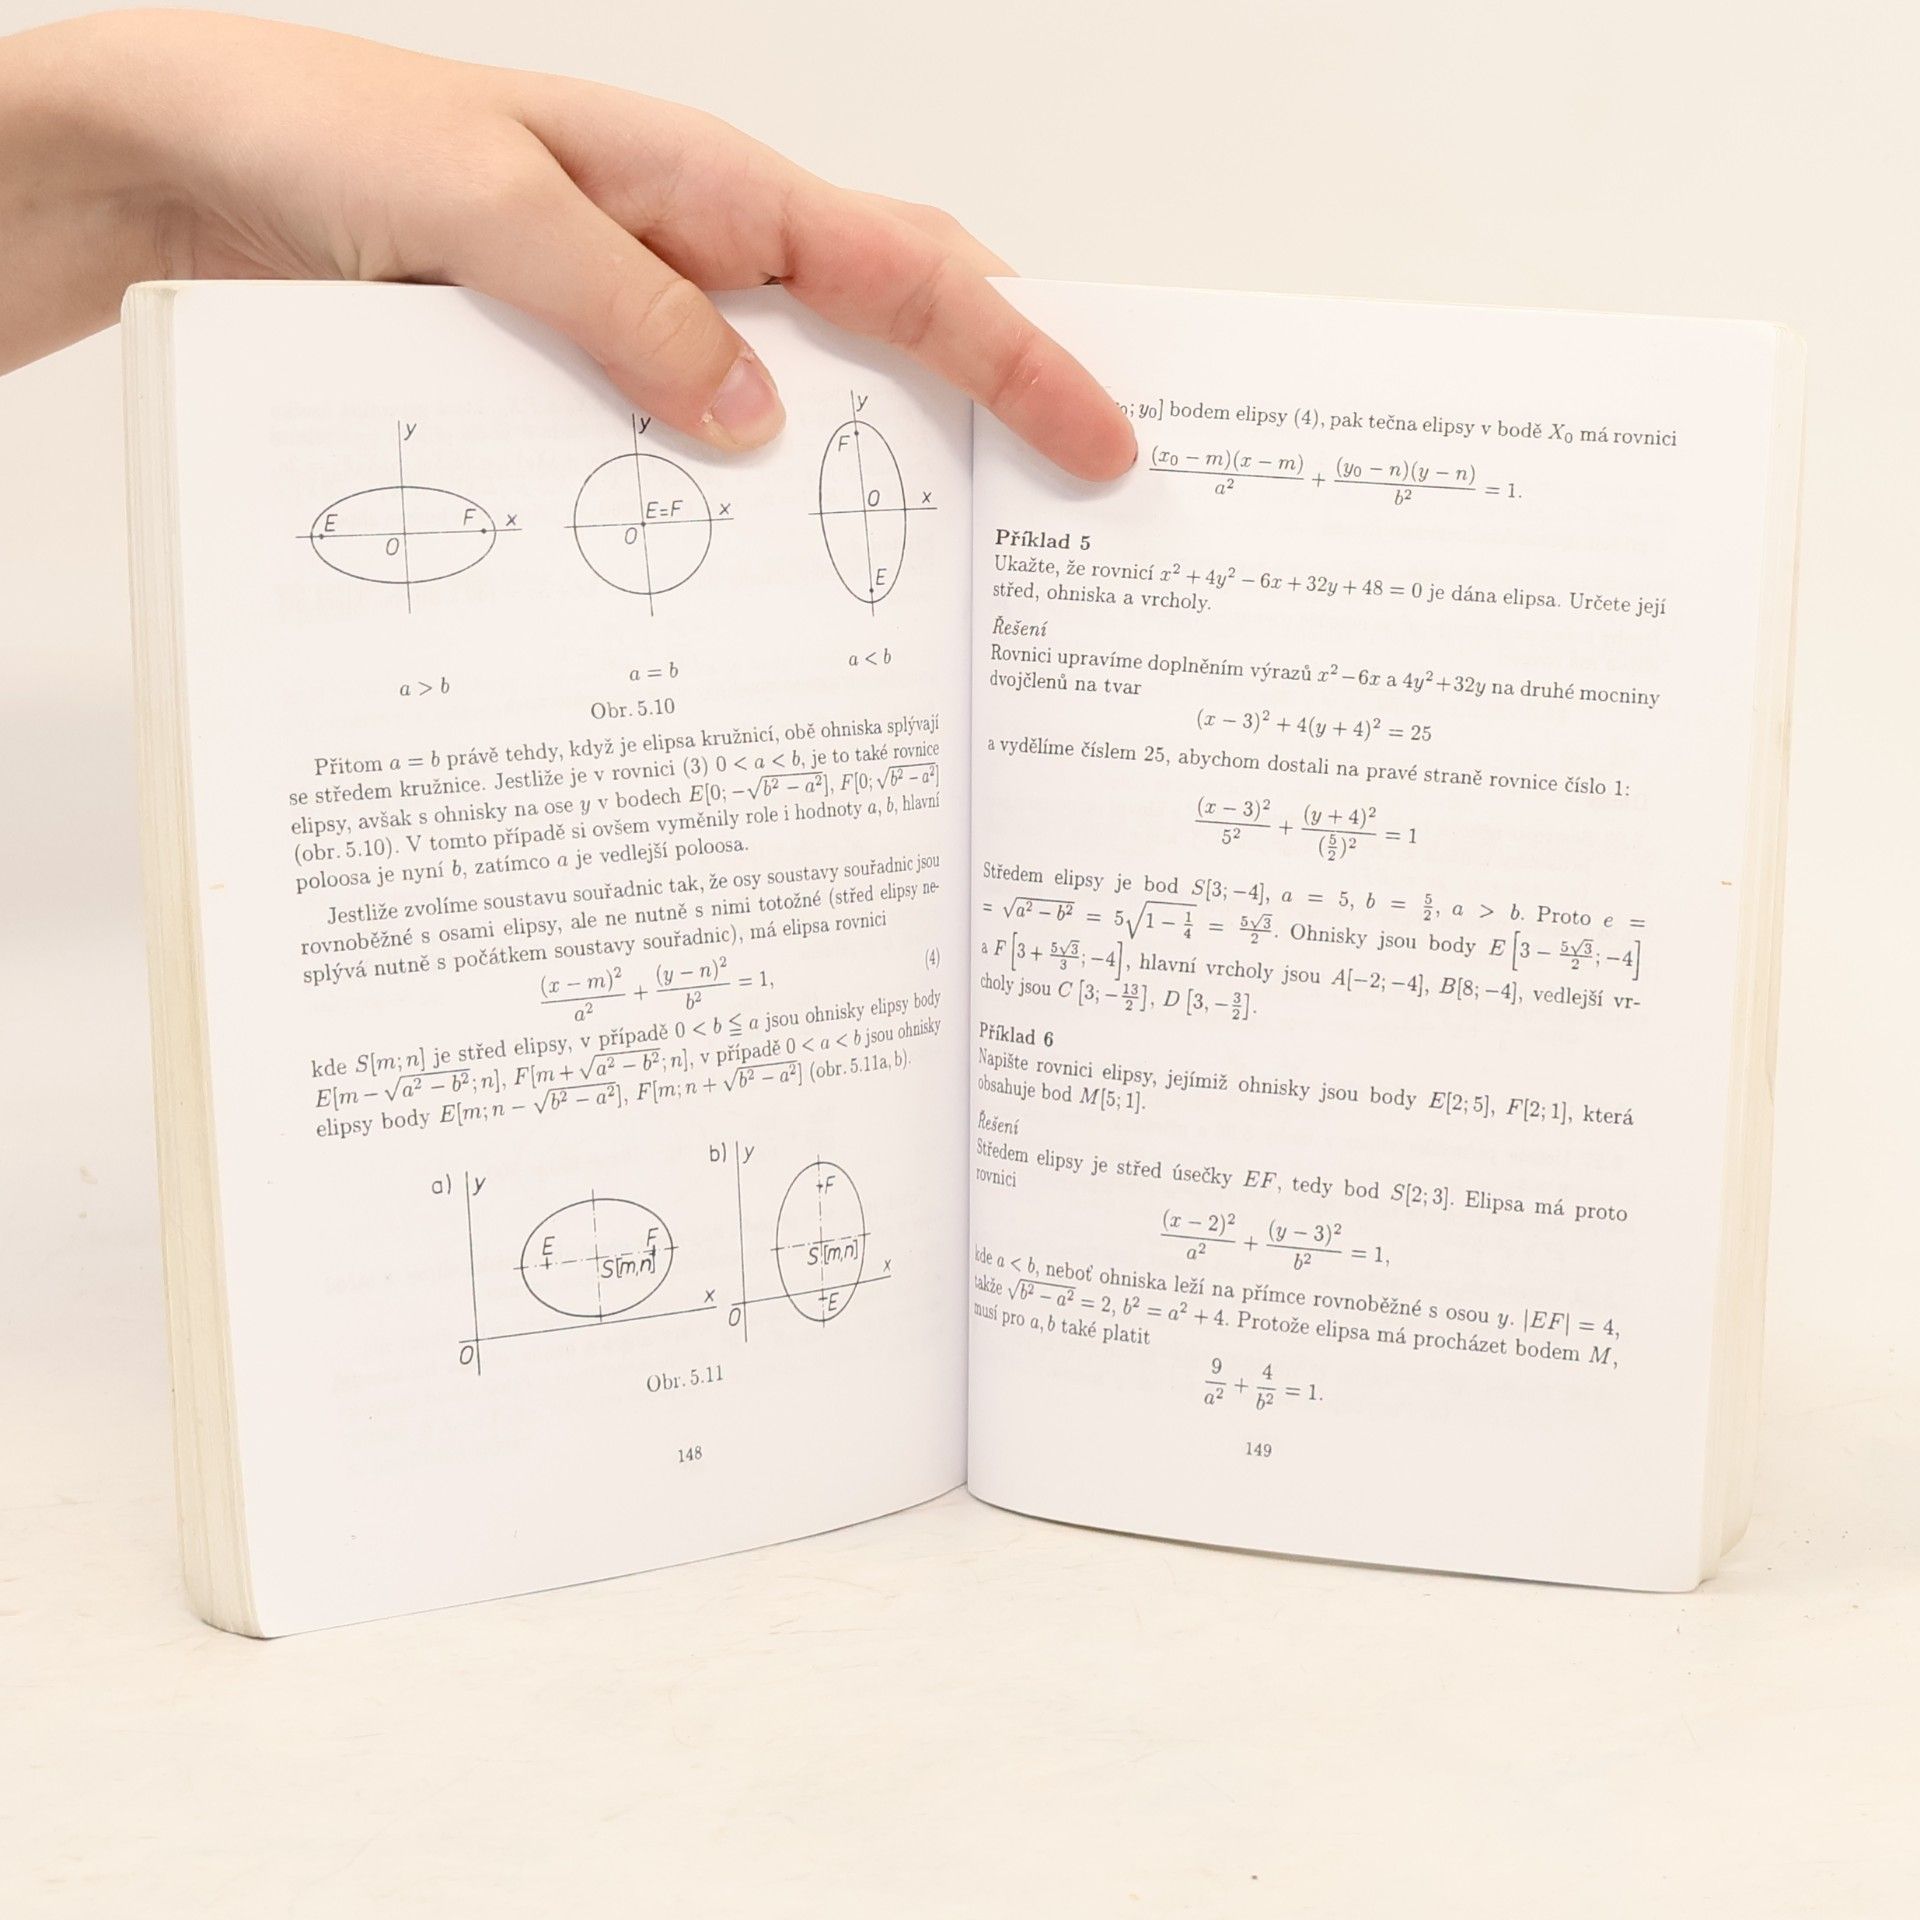 y
E F x
O
y
E=F x
O
y
F
O x
E
a > b
a = b
a < b
Obr. 5.10
Přitom a = b právě tehdy, když je elipsa kružnicí, obě ohniska splývají
se středem kružnice. Jestliže je v rovnici (3) 0 < a < b, je to také rovnice
elipsy, avšak s ohnisky na ose y v bodech E[0; −√(b² − a²)], F[0; √(b² − a²)]
(obr. 5.10). V tomto případě si ovšem vyměnily role i hodnoty a, b, hlavní
poloosa je nyní b, zatímco a je vedlejší poloosa.
Jestliže zvolíme soustavu souřadnic tak, že osy soustavy souřadnic jsou
rovnoběžné s osami elipsy, ale ne nutně s nimi totožné (střed elipsy ne-
splývá nutně s počátkem soustavy souřadnic), má elipsa rovnici
(x − m)²/a² + (y − n)²/b² = 1, (4)
kde S[m; n] je střed elipsy, v případě 0 < b ≦ a jsou ohnisky elipsy body
E[m − √(a² − b²); n], F[m + √(a² − b²); n], v případě 0 < a < b jsou ohnisky
elipsy body E[m; n − √(b² − a²)], F[m; n + √(b² − a²)] (obr. 5.11a, b).
a) y
E F
S[m,n]
x
O
b) y
F
S[m,n]
x
E
O
Obr. 5.11
148
; y₀] bodem elipsy (4), pak tečna elipsy v bodě X₀ má rovnici
(x₀ − m)(x − m)/a² + (y₀ − n)(y − n)/b² = 1.
Příklad 5
Ukažte, že rovnicí x² + 4y² − 6x + 32y + 48 = 0 je dána elipsa. Určete její
střed, ohniska a vrcholy.
Řešení
Rovnici upravíme doplněním výrazů x² − 6x a 4y² + 32y na druhé mocniny
dvojčlenů na tvar
(x − 3)² + 4(y + 4)² = 25
a vydělíme číslem 25, abychom dostali na pravé straně rovnice číslo 1:
(x − 3)²/5² + (y + 4)²/(5/2)² = 1
Středem elipsy je bod S[3; −4], a = 5, b = 5/2, a > b. Proto e =
= √(a² − b²) = 5√(1 − 1/4) = 5√3/2. Ohnisky jsou body E[3 − 5√3/2; −4]
a F[3 + 5√3/3; −4], hlavní vrcholy jsou A[−2; −4], B[8; −4], vedlejší vr-
choly jsou C[3; −13/2], D[3, −3/2].
Příklad 6
Napište rovnici elipsy, jejímiž ohnisky jsou body E[2; 5], F[2; 1], která
obsahuje bod M[5; 1].
Řešení
Středem elipsy je střed úsečky EF, tedy bod S[2; 3]. Elipsa má proto
rovnici
(x − 2)²/a² + (y − 3)²/b² = 1,
kde a < b, neboť ohniska leží na přímce rovnoběžné s osou y. |EF| = 4,
takže √(b² − a²) = 2, b² = a² + 4. Protože elipsa má procházet bodem M,
musí pro a, b také platit
9/a² + 4/b² = 1.
149